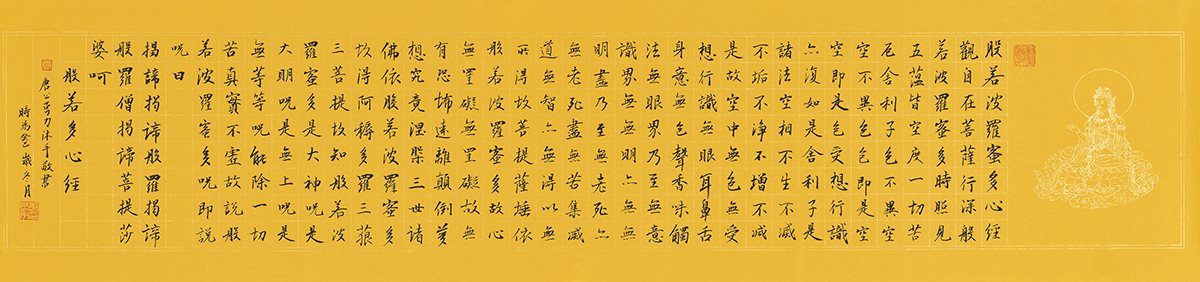 般若波羅蜜多心經
觀自在菩薩行深般
若波羅蜜多時照見
五蘊皆空度一切苦
厄舍利子色不異空
空不異色色即是空
空即是色受想行識
亦復如是舍利子是
諸法空相不生不滅
不垢不淨不增不減
是故空中無色無受
想行識無眼耳鼻舌
身意無色聲香味觸
法無眼界乃至無意
識界無無明亦無無
明盡乃至無老死亦
無老死盡無苦集滅
道無智亦無得以無
所得故菩提薩埵依
般若波羅蜜多故心
無罣礙無罣礙故無
有恐怖遠離顛倒夢
想究竟涅槃三世諸
佛依般若波羅蜜多
故得阿耨多羅三藐
三菩提故知般若波
羅蜜多是大神呪是
大明呪是無上呪是
無等等呪能除一切
苦真實不虛故說般
若波羅蜜多呪即說
呪曰
揭諦揭諦般羅揭諦
般羅僧揭諦菩提莎
婆呵
般若多心經
沐手敬書
時爲癸巳歲冬月